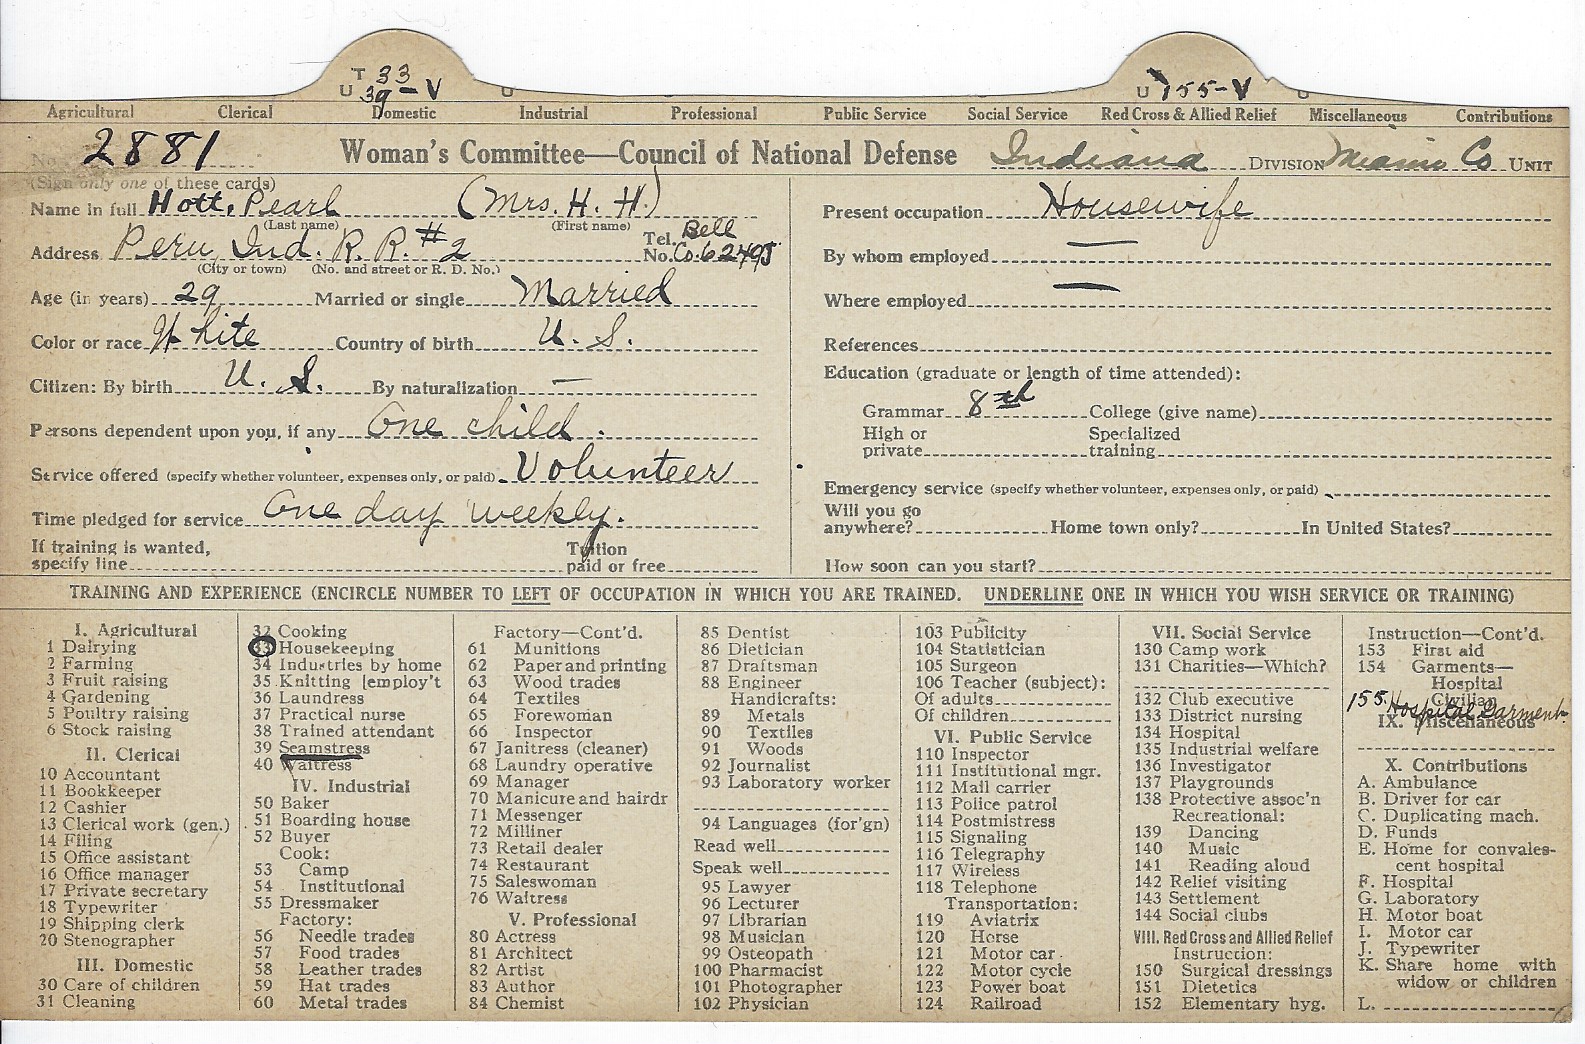 T 33
U 39 - V
U 155-V
Agricultural Clerical Domestic Industrial Professional Public Service Social Service Red Cross & Allied Relief Miscellaneous Contributions
No. 2881
Woman's Committee—Council of National Defense Indiana DIVISION Miami Co. UNIT
(Sign only one of these cards)
Name in full Hott, Pearl (Mrs. H. H.)
(Last name) (First name)
Address Peru, Ind. R. R. #2 Tel. No. Bell Co. 6249J
(City or town) (No. and street or R. D. No.)
Age (in years) 29 Married or single Married
Color or race White Country of birth U. S.
Citizen: By birth U. S. By naturalization —
Persons dependent upon you, if any One child.
Service offered (specify whether volunteer, expenses only, or paid) Volunteer
Time pledged for service One day weekly.
If training is wanted, specify line Tuition paid or free
Present occupation Housewife
By whom employed —
Where employed —
References
Education (graduate or length of time attended):
Grammar 8th College (give name)
High or private Specialized training
Emergency service (specify whether volunteer, expenses only, or paid)
Will you go anywhere? Home town only? In United States?
How soon can you start?
TRAINING AND EXPERIENCE (ENCIRCLE NUMBER TO LEFT OF OCCUPATION IN WHICH YOU ARE TRAINED. UNDERLINE ONE IN WHICH YOU WISH SERVICE OR TRAINING)
I. Agricultural
1 Dairying
2 Farming
3 Fruit raising
4 Gardening
5 Poultry raising
6 Stock raising
II. Clerical
10 Accountant
11 Bookkeeper
12 Cashier
13 Clerical work (gen.)
14 Filing
15 Office assistant
16 Office manager
17 Private secretary
18 Typewriter
19 Shipping clerk
20 Stenographer
III. Domestic
30 Care of children
31 Cleaning
32 Cooking
33 Housekeeping
34 Industries by home
35 Knitting [employ't
36 Laundress
37 Practical nurse
38 Trained attendant
39 Seamstress
40 Waitress
IV. Industrial
50 Baker
51 Boarding house
52 Buyer
Cook:
53 Camp
54 Institutional
55 Dressmaker
Factory:
56 Needle trades
57 Food trades
58 Leather trades
59 Hat trades
60 Metal trades
Factory—Cont'd.
61 Munitions
62 Paper and printing
63 Wood trades
64 Textiles
65 Forewoman
66 Inspector
67 Janitress (cleaner)
68 Laundry operative
69 Manager
70 Manicure and hairdr
71 Messenger
72 Milliner
73 Retail dealer
74 Restaurant
75 Saleswoman
76 Waitress
V. Professional
80 Actress
81 Architect
82 Artist
83 Author
84 Chemist
85 Dentist
86 Dietician
87 Draftsman
88 Engineer
Handicrafts:
89 Metals
90 Textiles
91 Woods
92 Journalist
93 Laboratory worker
94 Languages (for'gn)
Read well
Speak well
95 Lawyer
96 Lecturer
97 Librarian
98 Musician
99 Osteopath
100 Pharmacist
101 Photographer
102 Physician
103 Publicity
104 Statistician
105 Surgeon
106 Teacher (subject):
Of adults
Of children
VI. Public Service
110 Inspector
111 Institutional mgr.
112 Mail carrier
113 Police patrol
114 Postmistress
115 Signaling
116 Telegraphy
117 Wireless
118 Telephone
Transportation:
119 Aviatrix
120 Horse
121 Motor car
122 Motor cycle
123 Power boat
124 Railroad
VII. Social Service
130 Camp work
131 Charities—Which?
132 Club executive
133 District nursing
134 Hospital
135 Industrial welfare
136 Investigator
137 Playgrounds
138 Protective assoc'n
Recreational:
139 Dancing
140 Music
141 Reading aloud
142 Relief visiting
143 Settlement
144 Social clubs
VIII. Red Cross and Allied Relief
Instruction:
150 Surgical dressings
151 Dietetics
152 Elementary hyg.
Instruction—Cont'd.
153 First aid
154 Garments—
Hospital
Civilian
155. Hospital Garment
IX. Miscellaneous
X. Contributions
A. Ambulance
B. Driver for car
C. Duplicating mach.
D. Funds
E. Home for convales-
cent hospital
F. Hospital
G. Laboratory
H. Motor boat
I. Motor car
J. Typewriter
K. Share home with
widow or children
L.